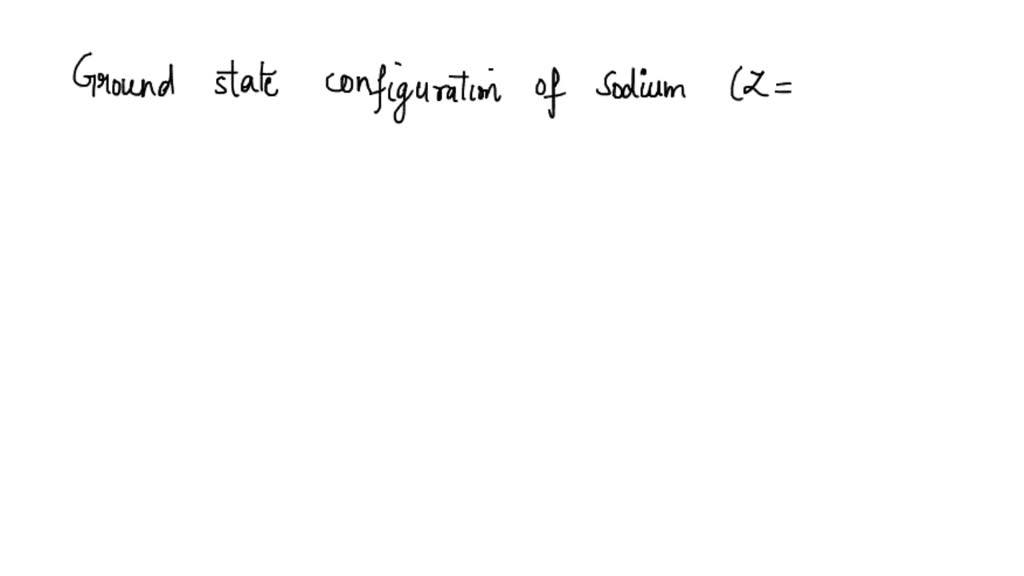 Ground state configuration of Sodium (Z=